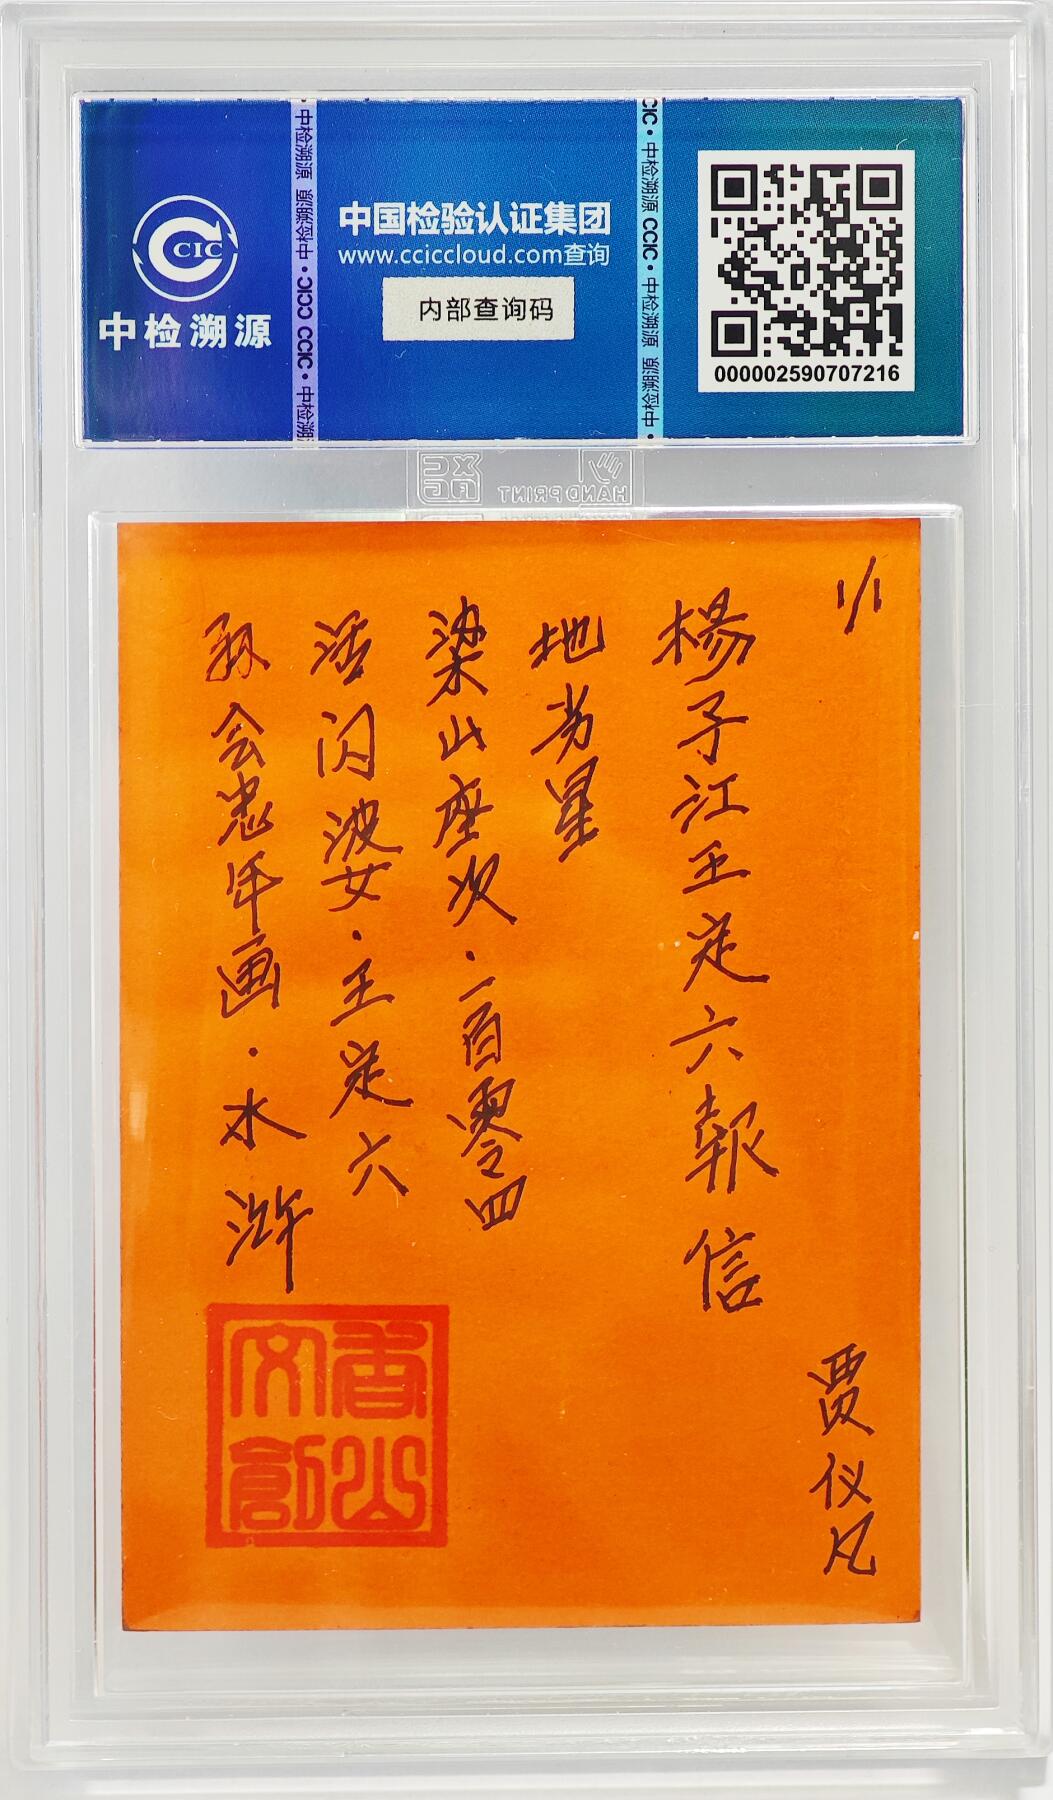 CCIC
中检溯源
中国检验认证集团
www.cciccloud.com查询
内部查询码
000002590707216
HAND PRINT
1/1
楊子江王定六報信
地劣星
梁山座次·一百零四
活闪婆·王定六
孙会忠年画·水浒
贾仪凡
香山
文創